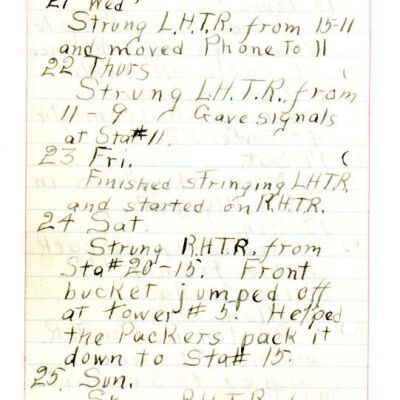 21 Wed
Strung L.H.T.R. from 15-11
and moved Phone To 11
22 Thurs
Strung L.H.T.R. from
11 - 9 Gave signals
at Sta#11.
23 Fri.
Finished stringing L.H.T.R.
and started on R.H.T.R.
24 Sat.
Strung R.H.T.R. from
Sta# 20-15. Front
bucket jumped off
at tower # 5. Helped
the Packers pack it
down to Sta# 15.
25. Sun.